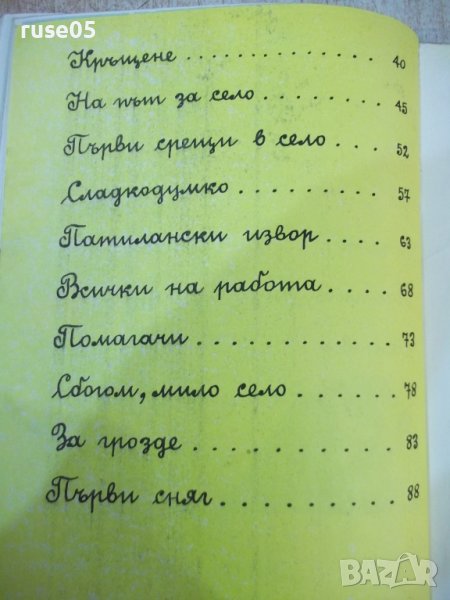 ruse05
Кръщене .............. 40
На път за село .......... 45
Първи срещи в село ... 52
Сладкодумко ......... 57
Патилански извор .... 63
Всички на работа .... 68
Помагачи ........... 73
Сбогом, мило село ..... 78
За грозде ........... 83
Първи сняг ......... 88
BAZAR
bazar.bg